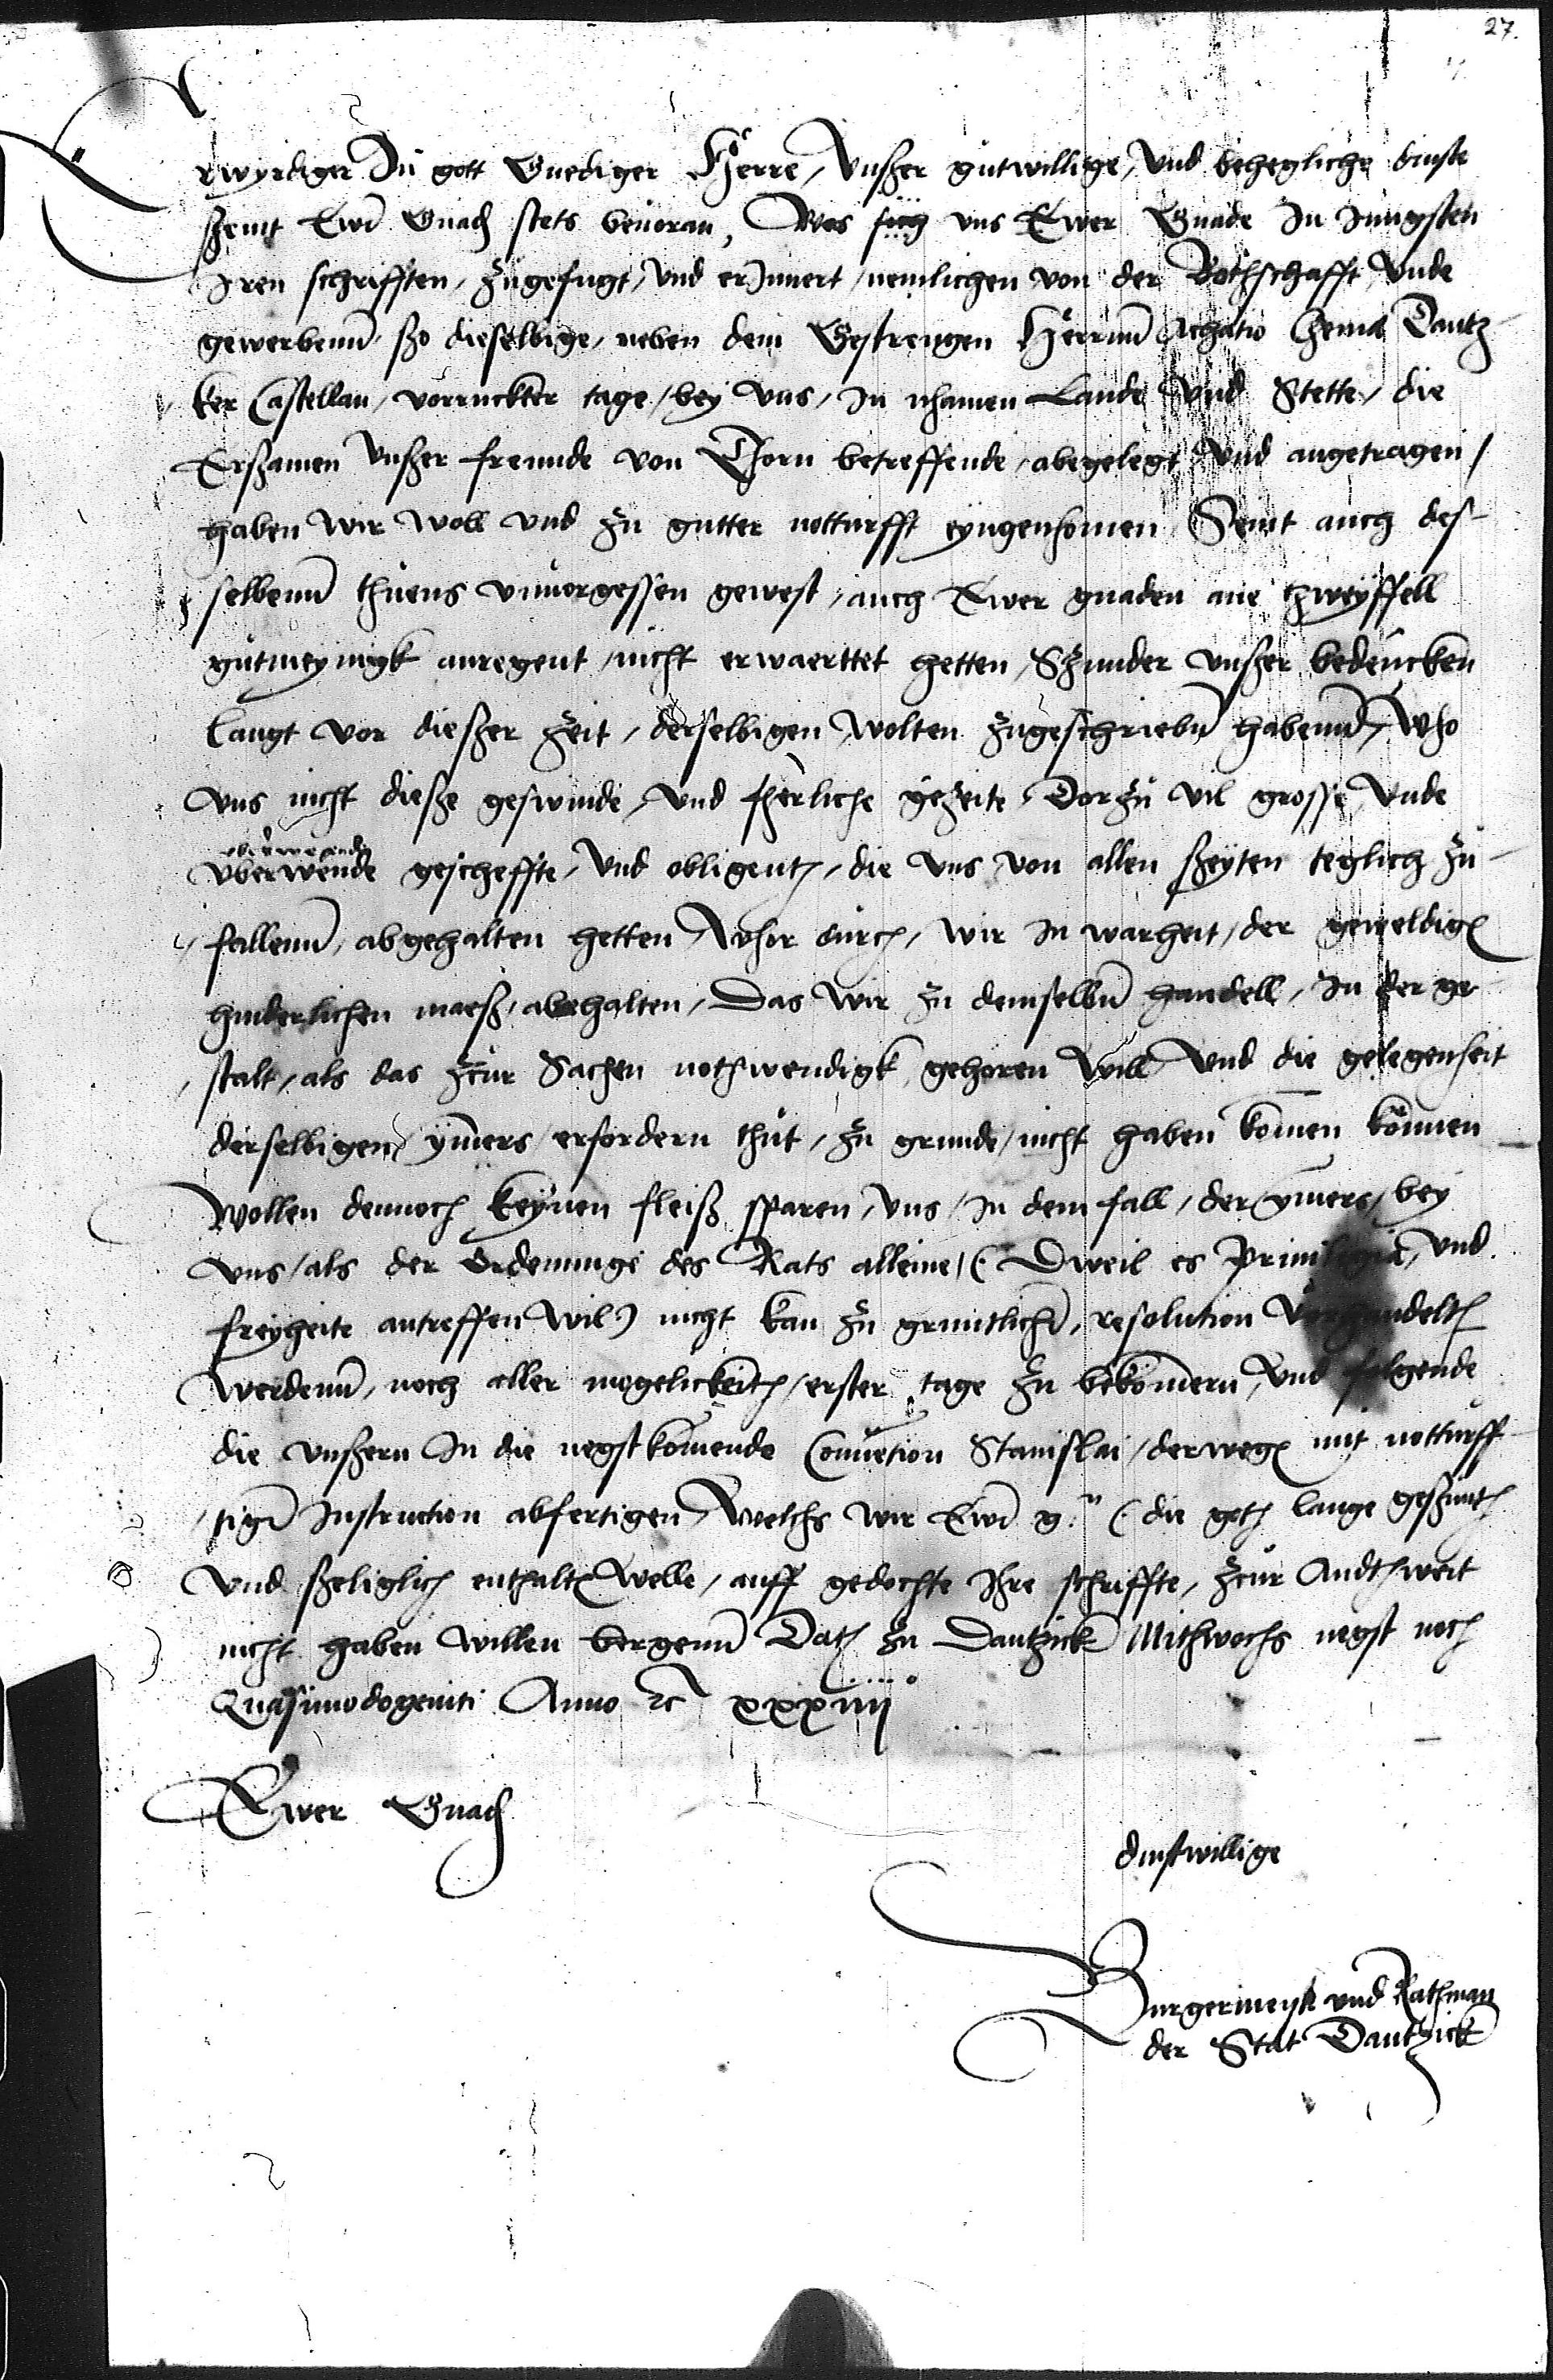 27.
Erwyrdiger In gott Gnediger Herre, Vnßer gutwillige, Vnd behegliche dinste
ßeint Ewr̄ Gnad stets beuoran, Was sich vns Ewer Gnade In Jungsten
Iren schrifften, zugefugt, vnd erInnert, nemlichen von der Bothschafft, Vnde
gewerbenn, ßo dieselbige, neben dem Gestrengen Herrnn Achatio Czema Dantz-
ker Castellan, vorruckter tage, bey vns, In nhamen Lande Vnd Stette, die
Erßamen Vnßer freunde von Thorn betreffende, abegelegt Vnd angetragen,
haben wir woll vnd zu gutter notturfft eyngenhomen, Seint auch des-
selbenn thuens vnuorgessen gewest, auch Ewer gnaden ane tzweyffell
gutmeynigk anregent, nicht erwarttet hetten, Szunder vnßer bedencken
langt vor dießer zeit, derselbigen, wolten zugeschriebn̄ habenn, Who
vns nicht dieße geswinde, vnd fherliche gezeite, Dorzu vil grosse, Vnde
oberwegende
vberwende gescheffte, Vnd obligent, die vns von allen ßeyten teglich zu-
fallenn, abgehalten hetten, Whor durch, wir In warheit, der geweldigen
hinderlichen maeß, abehalten, Das wir zu demselbn̄ handell, In der ge-
stalt, als das zcur Sachen nothwendigk gehoren will Vnd die gelegenheit
derselbigen, ym̄ers, erfordern thut, zu grunde, nicht haben kom̄en können
Wollen dennoch keynen fleiß sparen, vns, In dem fall, der ym̄ers, bey
vns, als der Ordenunge des Rats alleine, (Dweil es Priuilegia, Vnd
freyheite antreffen wil) nicht kan zu gruntlicher, resolution vorhandelt
werdenn, noch aller mogelickeit, erster tage zu bekom̄ern, Vnd folgende
die vnßern In die negstkom̄ende Conuētion Stanislai, derwegen mit notturff-
tiger Instruction abfertigen, Welchs wir Ewr̄ g.n (die goth lange gesunth
Vnd ßeliglich enthalten wolle, auff gedochte Ihre schriffte, zcur Andthwert
nicht haben willen bergenn Dath zu Dantzick Mithwochs negst noch
Quasimodogeniti Anno ꝛc xxxiiij
Ewer Gnad
dinstwillige
Burgermeyster vnd Rathman
der Stat Dantzick